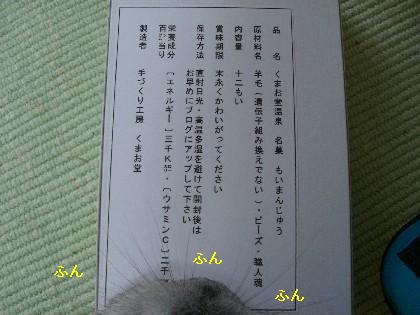 品名 くまお堂温泉 名菓 もいまんじゅう
原材料名 羊毛(遺伝子組み換えでない)・ビーズ・職人魂
内容量 十二もい
賞味期限 末永くかわいがってください
保存方法 直射日光・高温多湿を避けて開封後は
お早めにブログにアップして下さい
栄養成分
百㌘当り 〔エネルギー〕三千K㌍・〔ウサミンC〕二千
製造者 手づくり工房 くまお堂
ふん
ふん
ふん